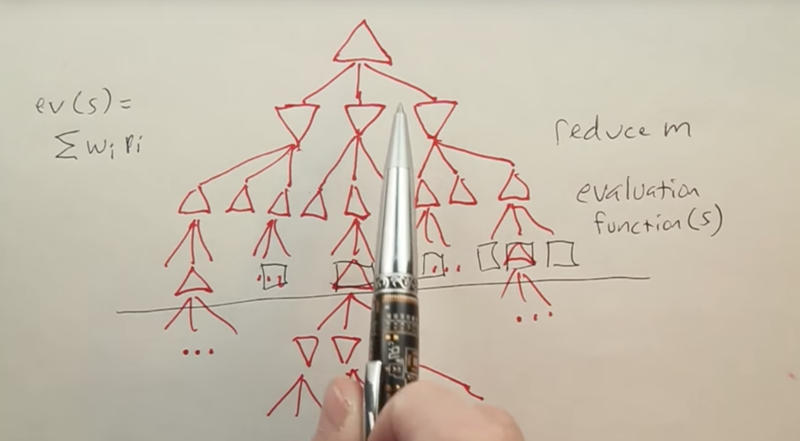 ev(s) =
Σ wᵢ pᵢ
reduce m
evaluation
function(s)